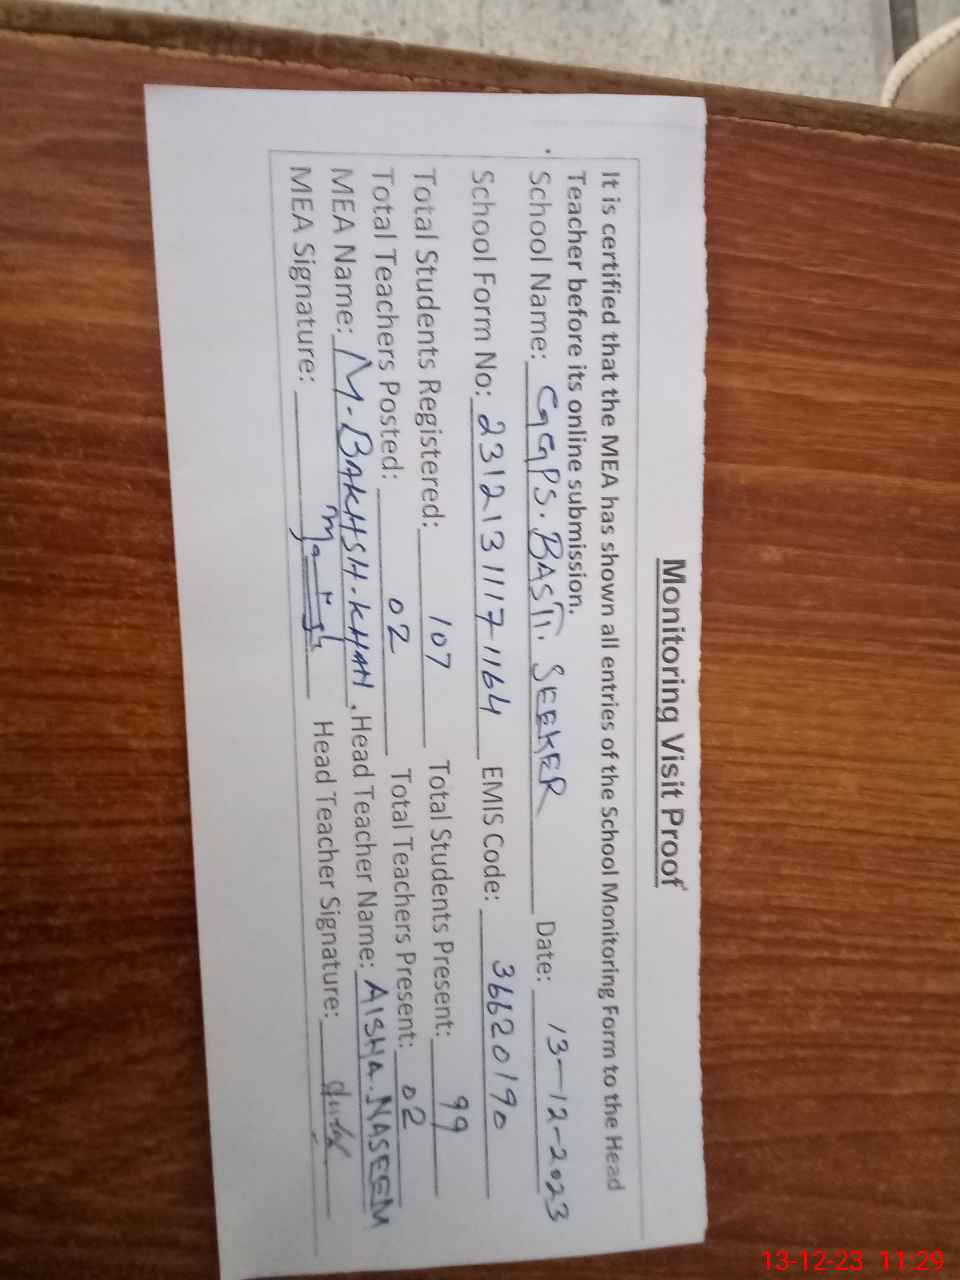 Monitoring Visit Proof
It is certified that the MEA has shown all entries of the School Monitoring Form to the Head
Teacher before its online submission.
School Name: GGPS. BASTI. SEEKER Date: 13-12-2023
School Form No: 2312131117-1164 EMIS Code: 36620190
Total Students Registered: 107 Total Students Present: 99
Total Teachers Posted: 02 Total Teachers Present: 02
MEA Name: M. BAKHSH. KHAN, Head Teacher Name: AISHA. NASEEM
MEA Signature: Head Teacher Signature:
13-12-23 11:29